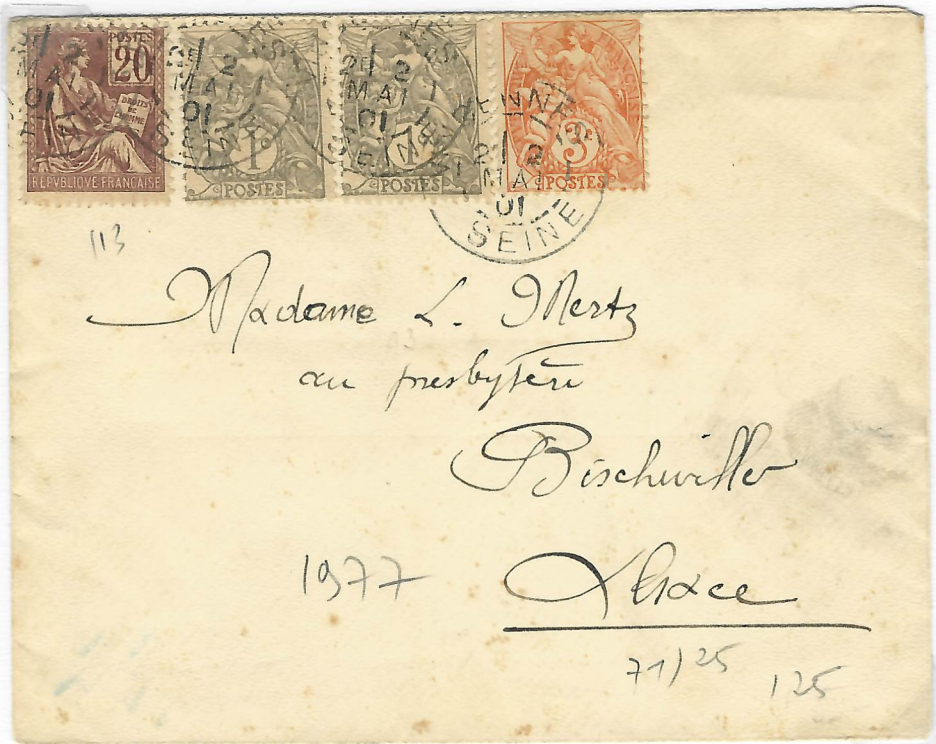 POSTES
20
DROITS DE L'HOMME
REPVBLIQUE FRANÇAISE
1c
POSTES
1c
POSTES
3c
POSTES
2 MAI 01
SEINE
113
Madame L. Mertz
au presbytère
Bischwiller
1977
Alsace
71/25
125